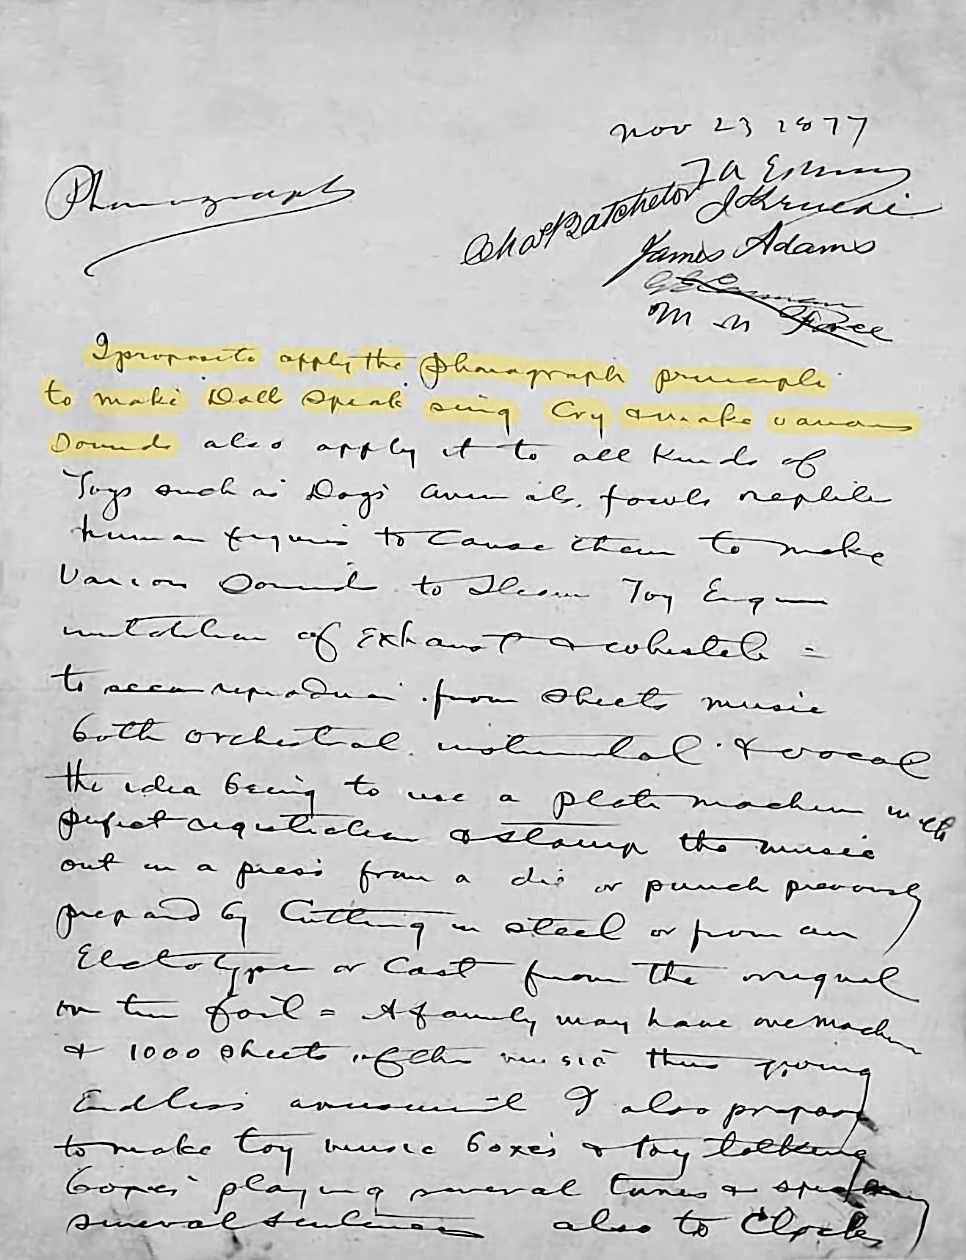 Nov 23 1877
Phonograph
T A Edison
Chas Batchelor
J Kruesi
James Adams
I propose to apply the phonograph principle
to make Dolls speak sing cry & make various
sounds also apply it to all kinds of
Toys such as Dogs animals, fowls reptiles
human figures to cause them to make
various sounds to Steam Toy Engine
imitation of Exhaust & whistle =
to reproduce from sheets music
both orchestral instrumental & vocal
the idea being to use a plate machine with
perfect registration & stamp the music
out in a press from a die or punch previously
prepared by cutting in steel or from an
Electrotype or cast from the original
on tin foil = A family may have one machine
& 1000 sheets of the music thus giving
Endless amusement I also propose
to make toy music boxes & toy talking
boxes playing several tunes & speaking
several sentences also to Clocks